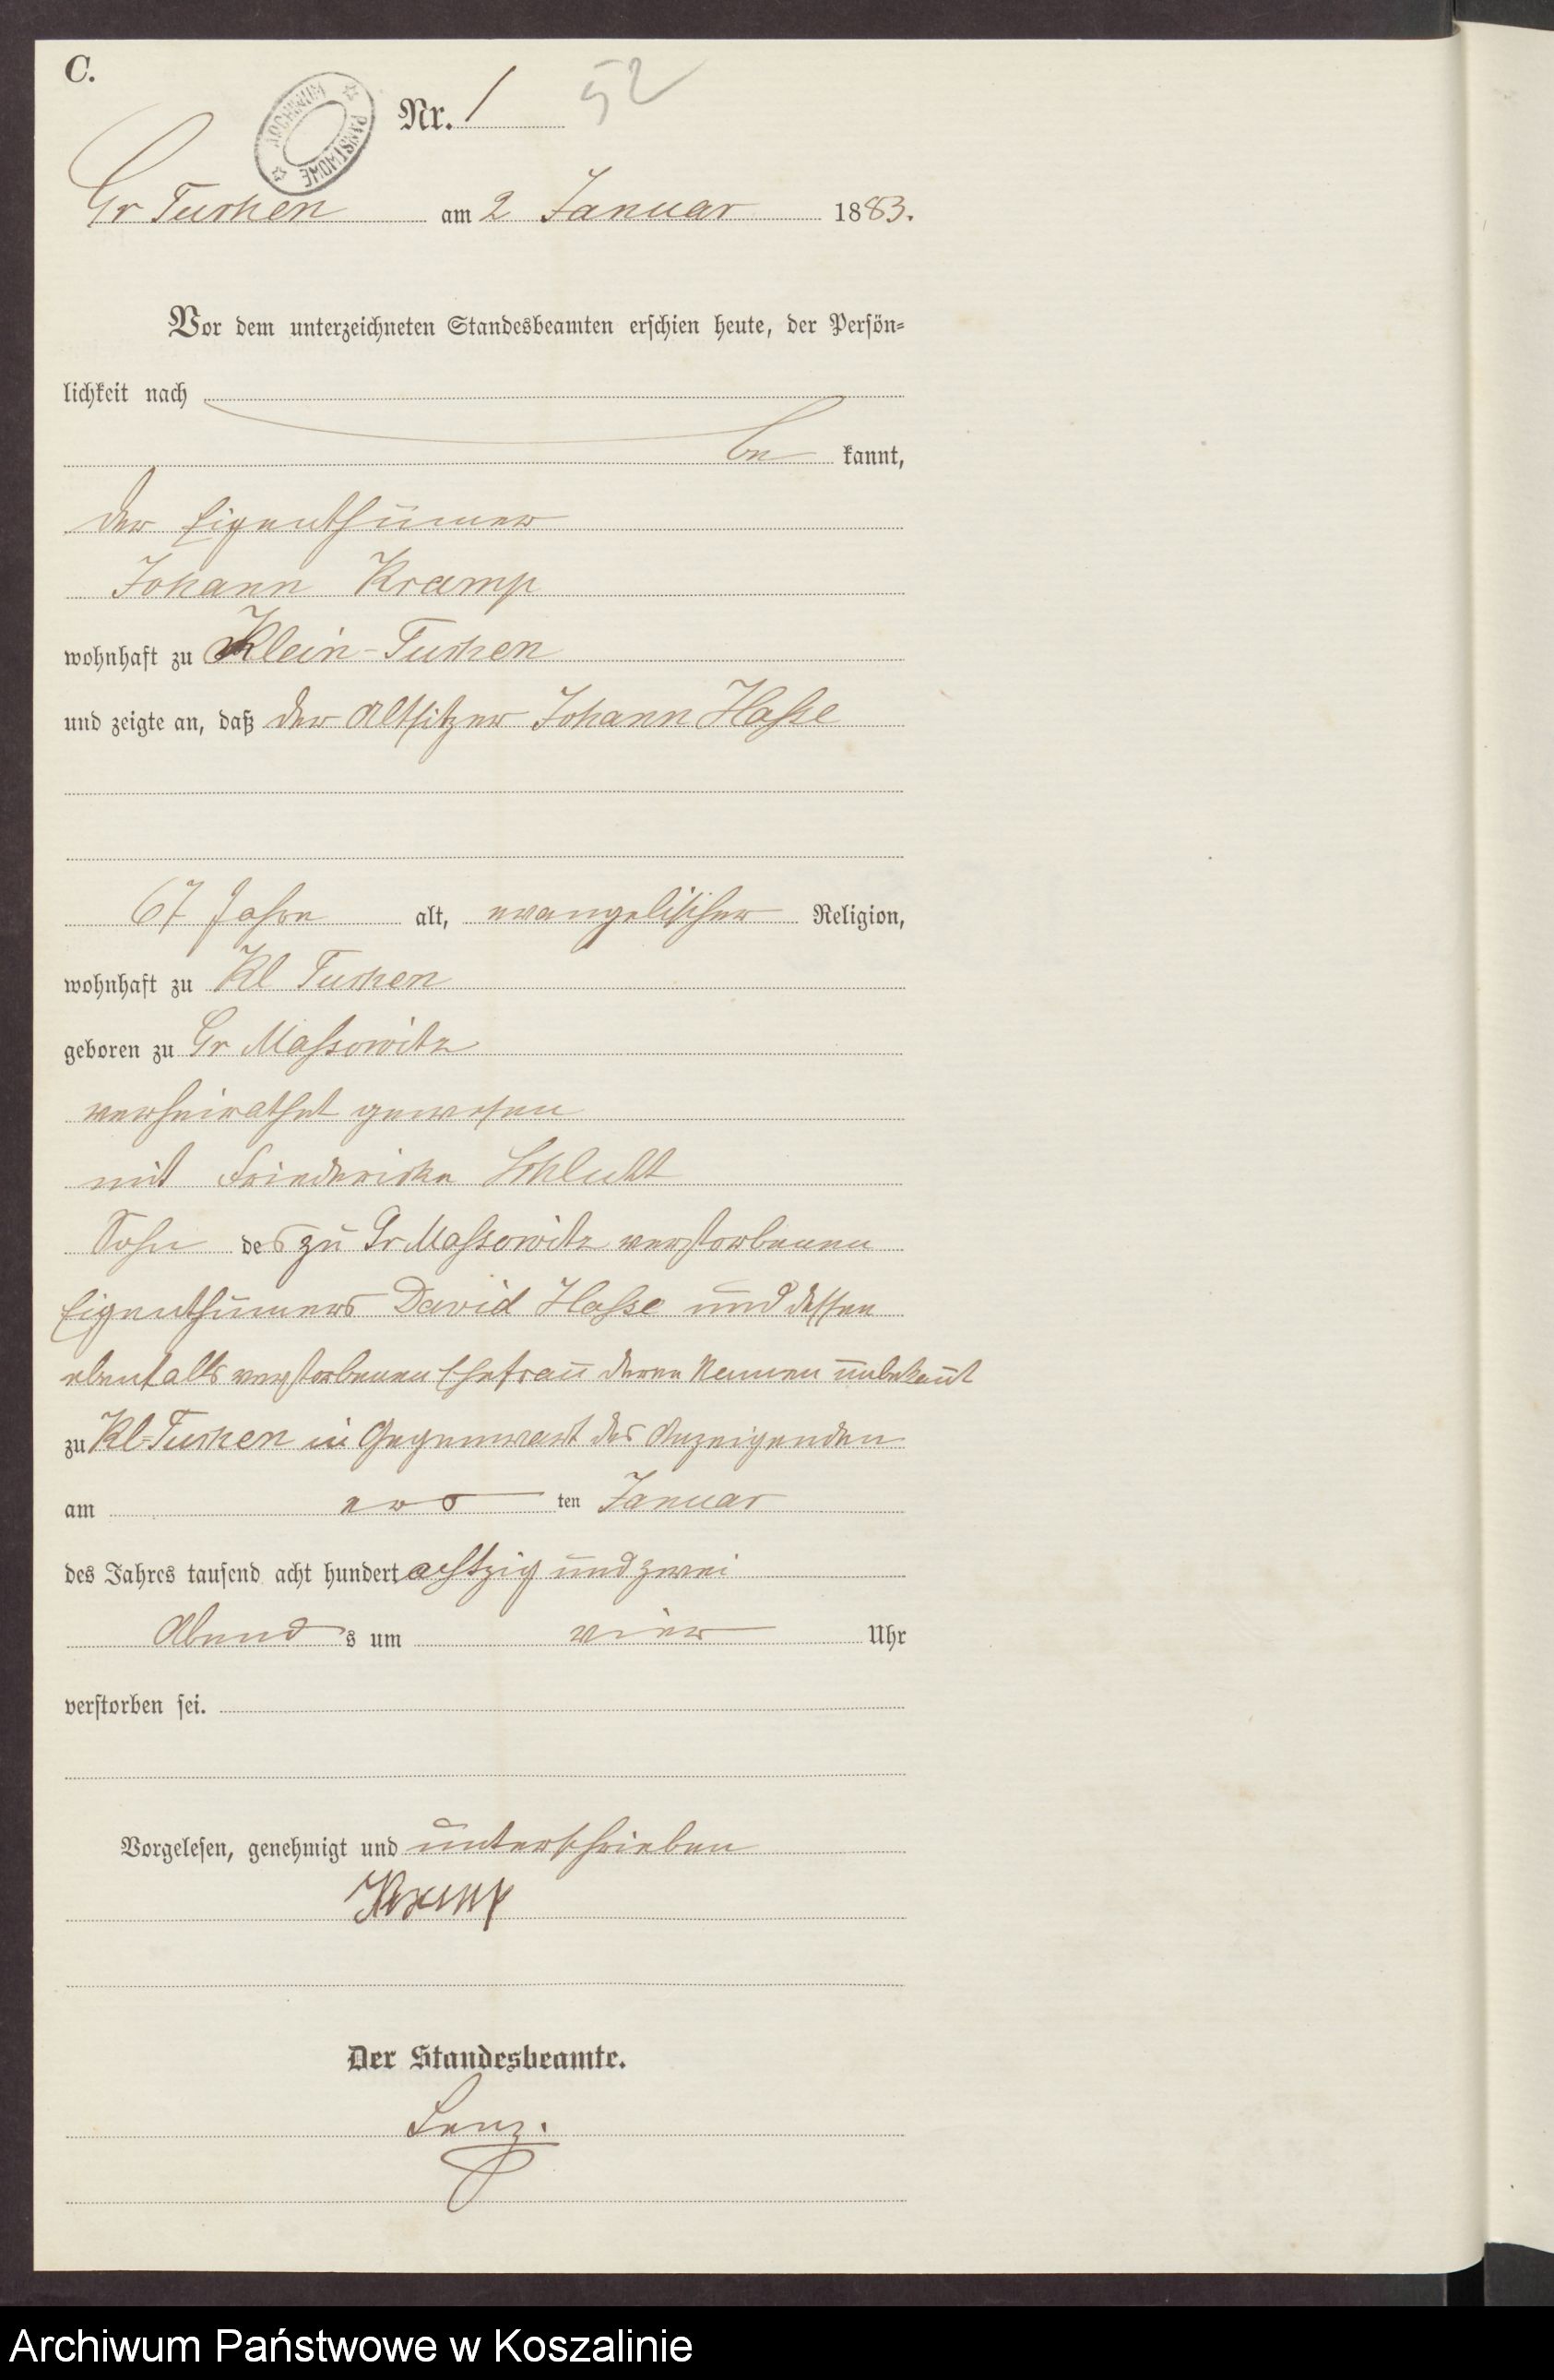 C.
ARCHIWUM PAŃSTWOWE
Nr. 1 52
Gr Tuchen am 2 Januar 1883.
Vor dem unterzeichneten Standesbeamten erschien heute, der Persön-
lichkeit nach
be kannt,
der Eigenthümer
Johann Kramp
wohnhaft zu Klein-Tuchen
und zeigte an, daß der Altsitzer Johann Hasse
67 Jahre alt, evangelischer Religion,
wohnhaft zu Kl Tuchen
geboren zu Gr Massowitz
verheirathet gewesen
mit Friedericke Schlucht
Sohn des zu Gr Massowitz verstorbenen
Eigenthümers David Hasse und dessen
ebenfalls verstorbenen Ehefrau deren Namen unbekant
zu Kl-Tuchen in Gegenwart des Anzeigenden
am ten Januar
des Jahres tausend acht hundert achtzig und zwei
Abend s um vier Uhr
verstorben sei.
Vorgelesen, genehmigt und unterschrieben
Kramp
Der Standesbeamte.
Lenz.
Archiwum Państwowe w Koszalinie